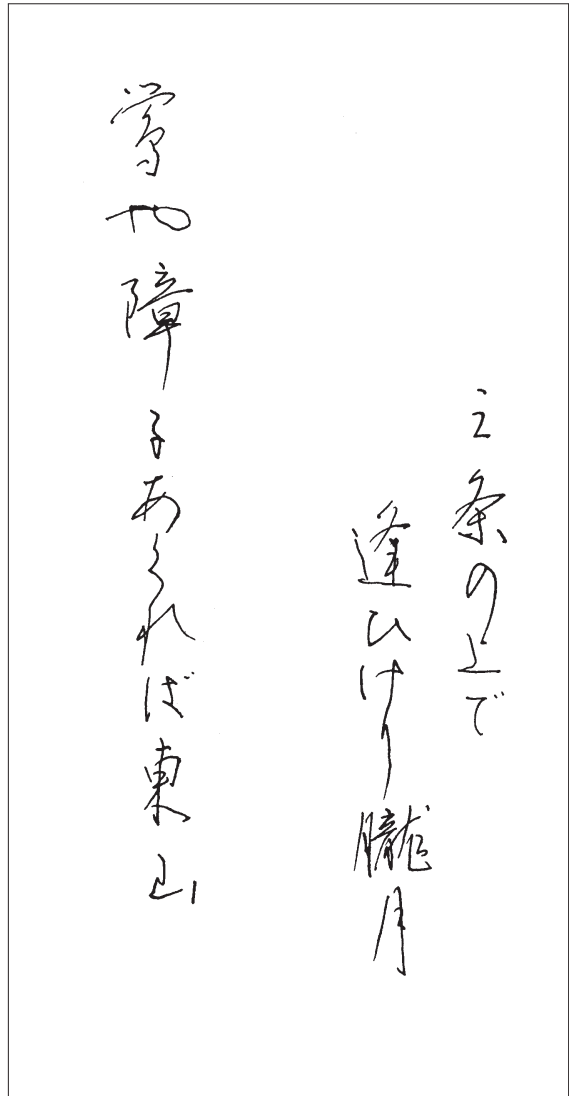 三条の上で
逢ひけり朧月
鶯や障子あくれば東山